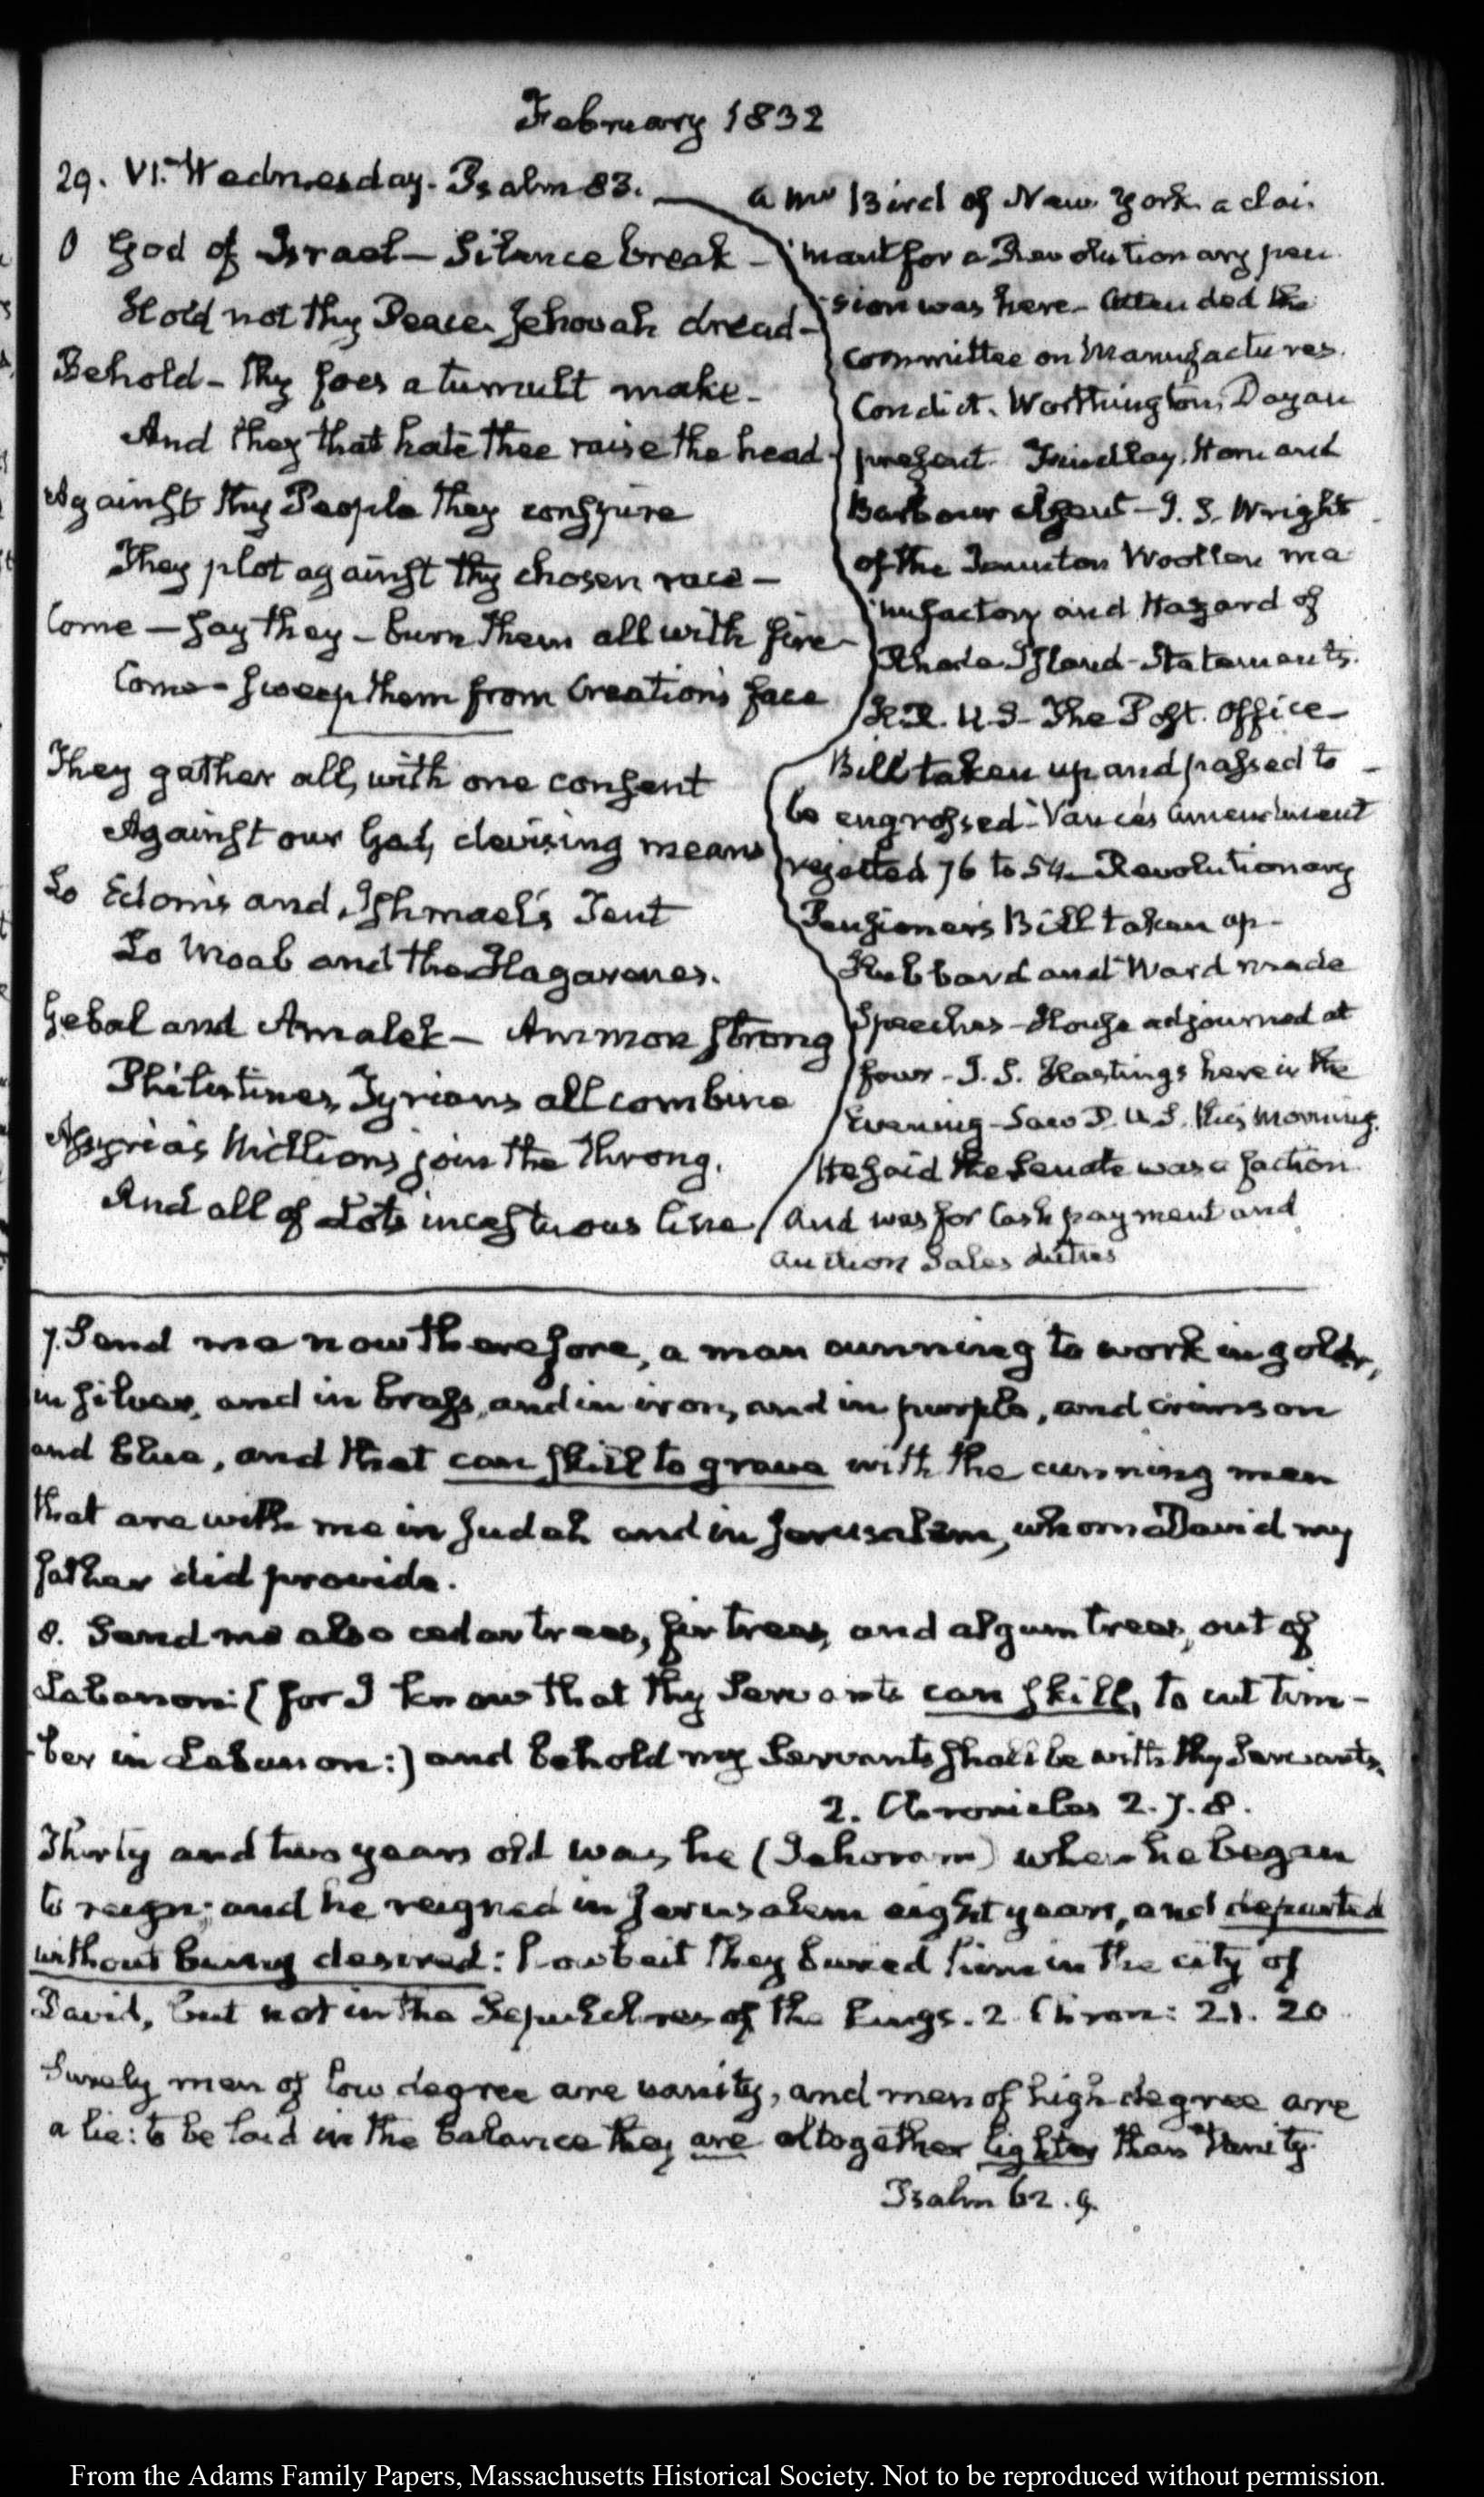 February 1832
29. VI. Wednesday. Psalm 83.
O God of Israel – Silence break –
Hold not thy Peace Jehovah dread –
Behold – thy foes a tumult make –
And they that hate thee raise the head –
Against thy People they conspire
They plot against thy chosen race –
Come – say they – burn them all with fire –
Come – sweep them from Creation's face
They gather all, with one consent
Against our God, devising means
Lo Edom's and Ishmael's Tent
Lo Moab and the Hagarenes.
Gebal and Amalek – Ammon strong
Philistines, Tyrians all combine
Assyria's Millions join the throng.
And all of Lot's incestuous line
a Mr Bird of New York a clai
mant for a Revolutionary pen
sion was here – Attended the
Committee on Manufactures.
Condict. Worthington, Dayan
present. Findlay, Horn and
Barbour absent – J. S. Wright
of the Taunton Woollen ma
nufactory and Hazard of
Rhode Island – Statements.
H.R. U.S – The Post Office
Bill taken up and passed to
be engrossed – Vance's amendment
rejected 76 to 54 – Revolutionary
Pensioners Bill taken up –
Hubbard and Ward made
Speeches – House adjourned at
four – J. S. Hastings here in the
Evening – Saw P. U.S. this morning.
He said the Senate was a faction
And was for Cash payment and
auction Sales duties
7. Send me now therefore, a man cunning to work in gold,
in silver, and in brass, and in iron, and in purple, and crimson
and blue, and that can skill to grave with the cunning men
that are with me in Judah and in Jerusalem, whom David my
father did provide.
8. Send me also cedar trees, fir trees, and algum trees, out of
Lebanon: (for I know that thy Servants can skill, to cut tim-
-ber in Lebanon:) and behold my Servants shall be with thy Servants.
2. Chronicles 2. 7. 8.
Thirty and two years old was he (Jehoram) when he began
to reign; and he reigned in Jerusalem eight years, and departed
without being desired: howbeit they buried him in the city of
David, but not in the Sepulchres of the Kings. 2 Chron: 21. 20
Surely men of low degree are vanity, and men of high degree are
a lie: to be laid in the balance they are altogether lighter than Vanity.
Psalm 62. 9.
From the Adams Family Papers, Massachusetts Historical Society. Not to be reproduced without permission.